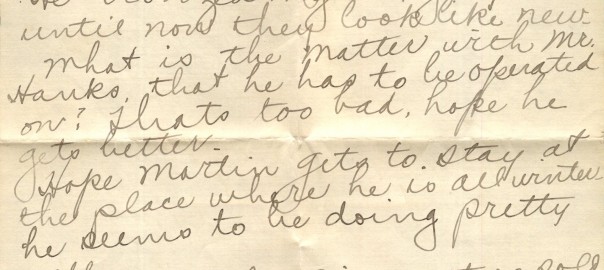 until now they look like new
What is the matter with Mr.
Hanks, that he has to be operated
on? Thats too bad, hope he
gets better.
Hope Martin gets to stay at
the place where he is all winter
he seems to be doing pretty